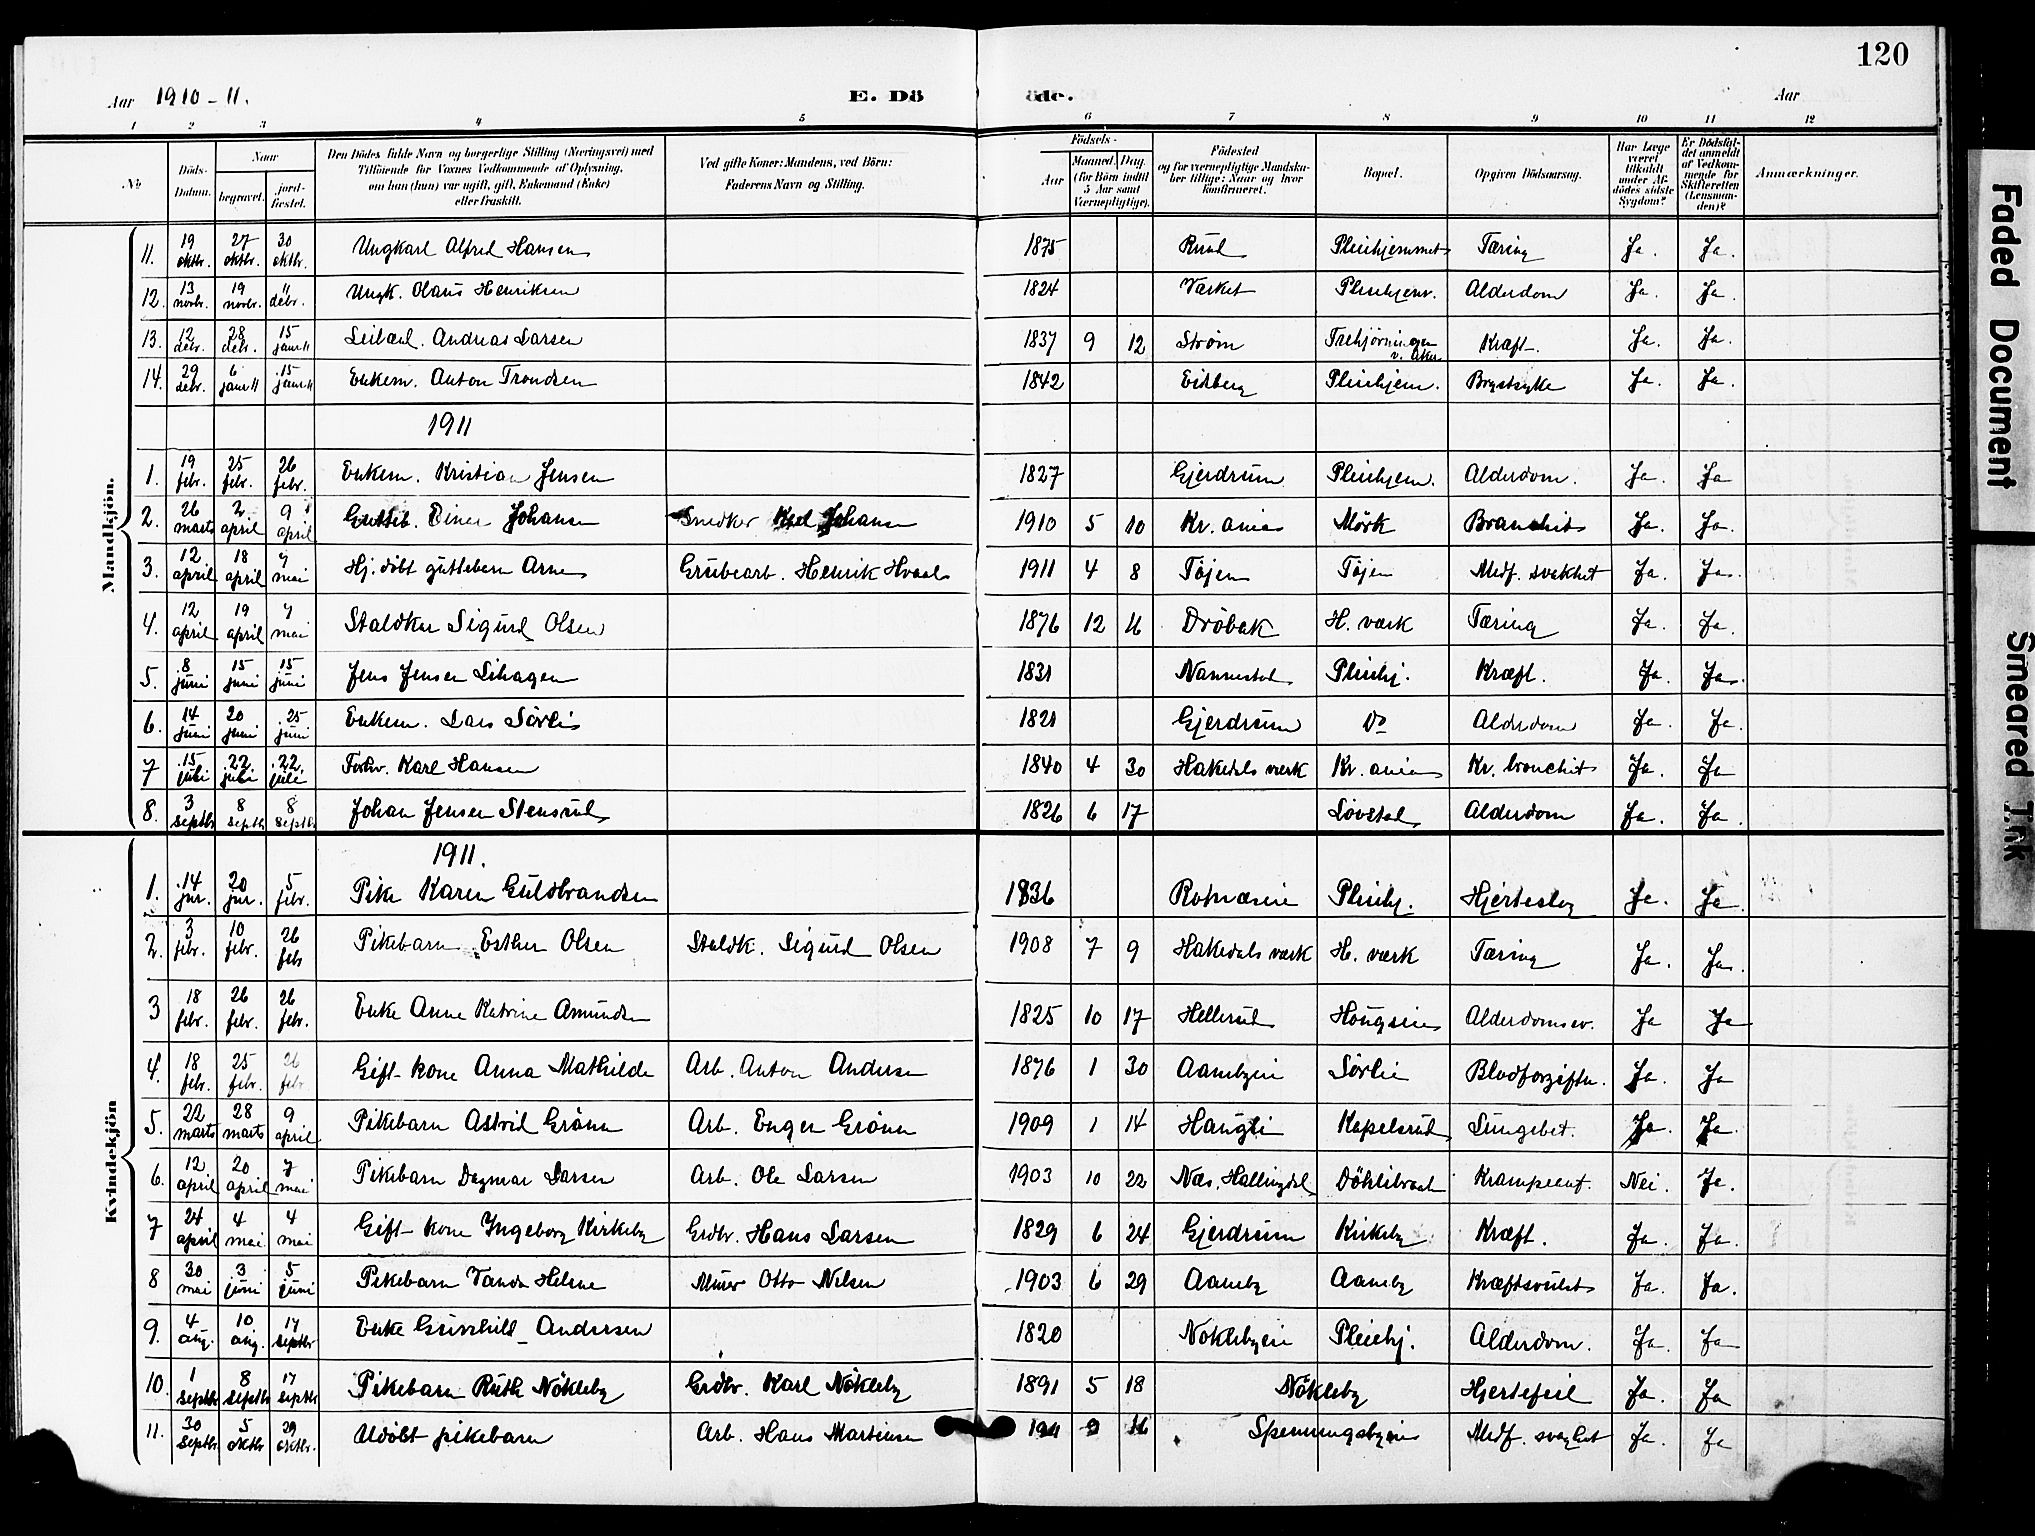 120
Aar 1910-11. E. Dö öde. Aar
1 2 3 4 5 6 7 8 9 10 11 12
No Döds-Datum. Naar begravet. jordfæstet. Den Dödes fulde Navn og borgerlige Stilling (Næringsvei) med Tilföiende for Voxnes Vedkommende af Oplysning, om han (hun) var ugift, gift, Enkemand (Enke) eller fraskilt. Ved gifte Koner: Mandens, ved Börn: Faderens Navn og Stilling. Födsels- Aar Maaned. Dag. (for Börn indtil 5 Aar samt Værnepligtige). Födested og for værnepligtige Mandskaber tillige: Naar og hvor Konfirmeret. Bopæl. Opgiven Dödsaarsag. Har Læge været tilkaldt under Afdödes sidste Sygdom? Er Dödsfaldet anmeldt af Vedkommende for Skifteretten (Lensmanden)? Anmærkninger.
Mandkjön.
11. 19 oktbr. 27 oktbr. 30 oktbr. Ungkarl Alfred Hansen 1875 Ruud Pleiehjemmet Tæring Ja. Ja.
12. 13 novbr. 19 novbr. 11 debr. Ungk. Olaus Henriksen 1824 Værket Pleiehjem. Alderdom Ja. Ja.
13. 12 debr. 28 debr. 15 janr 11 Andreas Larsen 1837 9 12 Strøm v. Aker Kræft. Ja. Ja.
14. 29 debr. 6 janr 11 15 janr 11 Enkem. Anton Trondsen 1842 Eidsberg Pleiehjem. Brystsyke Ja. Ja.
1911
1. 19 febr. 25 febr. 26 febr. Enkem. Kristian Jensen 1827 Gjerdrum Pleiehjem. Alderdom. Ja. Ja
2. 26 marts 2 april 9 april Gutteb. Einar Johansen Snedker Karl Johansen 1910 5 10 Kr.ania Mörk Bronchit Ja. Ja.
3. 12 april 18 april 7 mai Hj. döbt guttebarn Arne Grubearb. Henrik Hvaal 1911 4 8 Töjen Töjen Medf. svakhet Ja. Ja.
4. 12 april 19 april 7 mai Staldkar Sigurd Olsen 1876 12 16 Dröbak H. værk Tæring Ja. Ja.
5. 8 juni 15 juni 15 juni Jens Jensen Lihagen 1831 Nannestad Pleiehj. Kræft. Ja. Ja.
6. 14 juni 20 juni 25 juni Enkem. Lars Sörlie 1821 Gjerdrum Do Alderdom Ja. Ja.
7 15 juli 22 juli 22 juli Forhv. Karl Hansen 1840 4 30 Hakedals værk Kr.ania Kr. bronchit Ja. Ja
8. 3 septbr 8 septbr 8 septbr Johan Jensen Stensrud 1826 6 17 Løvstad Alderdom Ja. Ja.
Kvindekjön
1911.
1. 14 jnr. 20 jnr. 5 febr. Pike Karen Guldbrandsen 1836 Rotnæseie Pleiehj. Hjerteslag Ja. Ja.
2. 3 febr. 10 febr. 26 feb Pikebarn Esther Olsen Staldk. Sigurd Olsen 1908 7 9 Hakedals værk H. værk Tæring Ja. Ja.
3 18 febr. 26 febr. 26 febr. Enke Anne Katrine Amundsen 1825 10 17 Hellerud Haugseie Alderdomssv. Ja Ja
4. 18 febr. 25 febr. 26 febr Gift kone Anna Mathilde Arb. Anton Andersen 1876 1 30 Aambyeie Sørlie Blodforgiftn. Ja. Ja
5. 22 marts 28 marts 9 april Pikebarn Astrid Grönn Arb. Enger Grönn 1909 1 14 Haugli Kapelsrud Lungebet. Ja. Ja.
6. 12 april 20 april 7 mai Pikebarn Dagmar Larsen Arb. Ole Larsen 1903 10 22 Næs. Hallingdal Krampeanf. Nei. Ja.
7 24 april 4 mai 4 mai Gift kone Ingeborg Kirkeby Grdbr. Hans Larsen 1829 6 24 Gjerdrum Kirkeby Kræft. Ja. Ja.
8 30 mai 3 juni 5 juni Pikebarn Vanda Helene Murer Otto Nilsen 1903 6 29 Aamby Aamby Kræftsvulst Ja. Ja.
9. 4 aug. 10 aug. 17 septbr Enke Gunhild Andersen 1820 Nøklebyeie Pleiehj. Alderdom. Ja. Ja
10. 1 septbr 8 septbr 17 septbr Pikebarn Ruth Nökleby Grdbr. Karl Nökleby 1891 5 18 Nökleby Hjertefeil Ja. Ja
11. 30 septbr. 5 oktbr 29 oktbr. Udöbt pikebarn Arb. Hans Martinsen 1911 9 16 Spenningsbyeie Medf. svaghet Ja. Ja
Faded Document
Smeared Ink